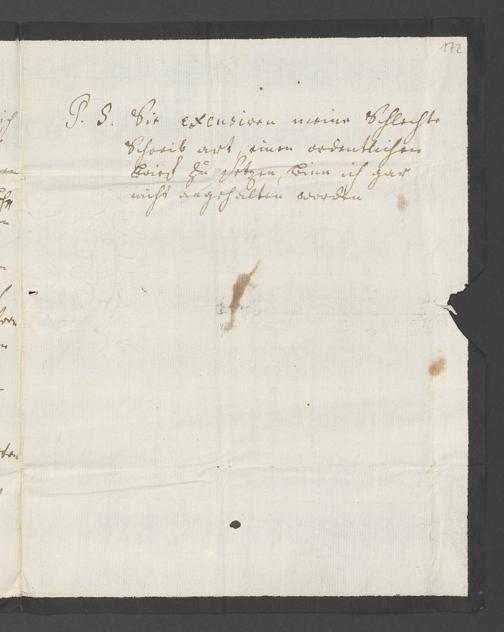 172
P. S. Sie excusiren meine Schlechte
Schreib art, einen ordentlichen
brief zu setzen, binn ich gar
nicht angehalten worden